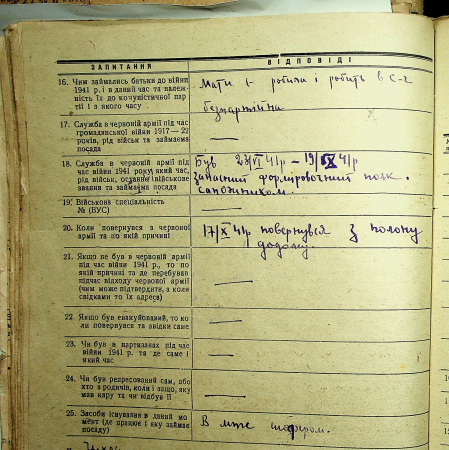 ЗАПИТАННЯ
ВІДПОВІДІ
16. Чим займались батьки до війни
1941 р. і в даний час та належ-
ність їх до комуністичної пар-
тії і з якого часу
Мати – робила і робить в с-г
безпартійна
17. Служба в червоній армії під час
громадянської війни 1917 — 22
років, рід військ та займаєма
посада
18. Служба в червоній армії під
час війни 1941 року, який час,
рід військ, останнє військове
звання та займаєма посада
Був 23/VI 41р – 19/IX 41р
запасний формировочний полк.
сапожником.
19. Військова спеціальність
№ (ВУС)
20. Коли повернувся з червоної
армії та по якій причині
17/X 41р повернувся з полону
додому.
21. Якщо не був в червоній армії
під час війни 1941 р., то по
якій причині та де перебував
підчас відходу червоної армії
(чим може підтвердити, а коли
свідками то їх адреса)
22. Якщо був евакуйований, то ко-
ли повернувся та звідки саме
23. Чи був в партизанах під час
війни 1941 р. та де саме і
який час
24. Чи був репресований сам, або
хто з родичів, коли і защо, яку
мав кару та чи відбув її
25. Засоби існування в даний мо-
мент (де працює і яку займає
посаду)
В шофером.